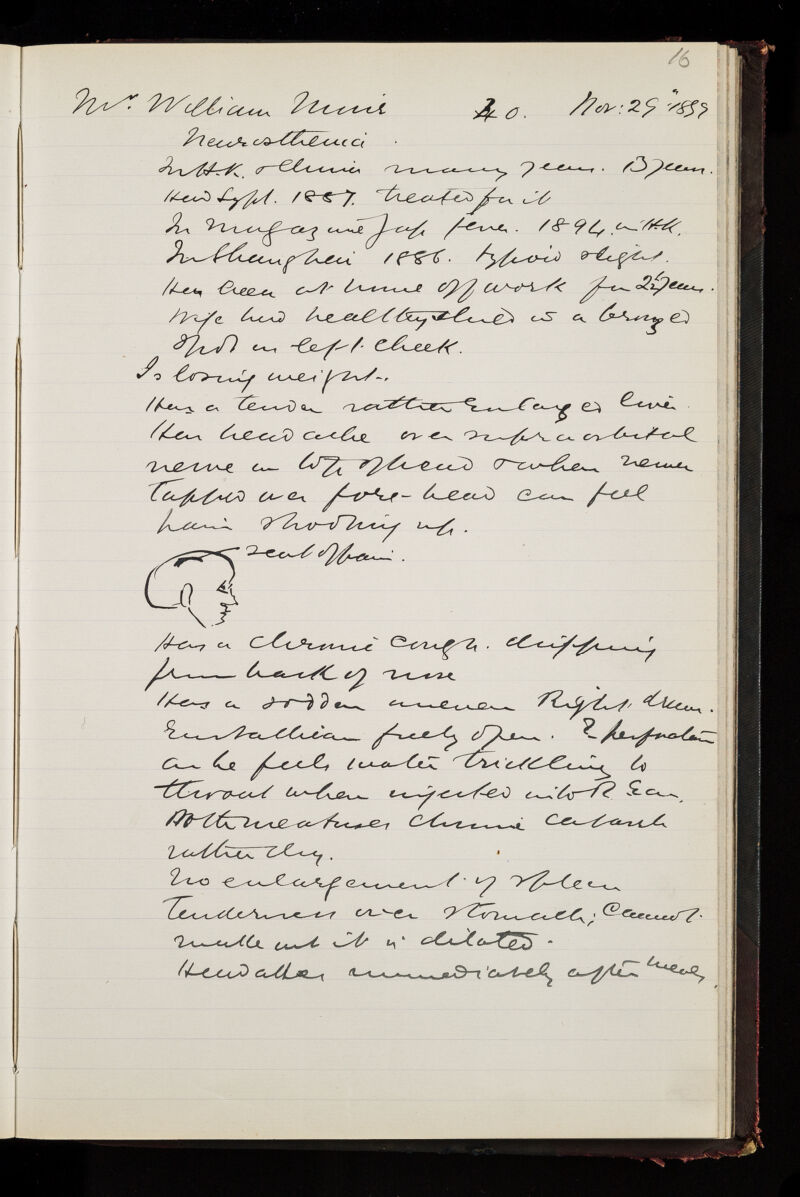 16
Mr. William Muir 40. Nov: 29" 1899
Neurasthenia.
In H.K. & China many years. 13 years.
Had Syph. 1887. treated for it
In Magazine Gap fever. 1894. in H.K.
In Shanghai 1886. typhoid slight.
Has been at home off work for 2½ years.
Wife had healthy child is a bronzed
spot on left cheek.
Is losing weight.
Has a tender rather enlarged liver.
Has headache over supraorbital
nerve on top of head & when nerve
tapped over fore-head can feel
pain shooting up.
seat of pain.
Has a chronic cough. dripping
from back of nose
Has a sodden uneven Right drum.
Eustachian freely open. ? perforation
as he feels water trickling to
throat when injected into R Ear.
Both meatuses chronic catarrh
rather dry.
No enlargement of spleen
tenderness over stomach; cannot
make out it is dilated.
Headaches immediately after meals.